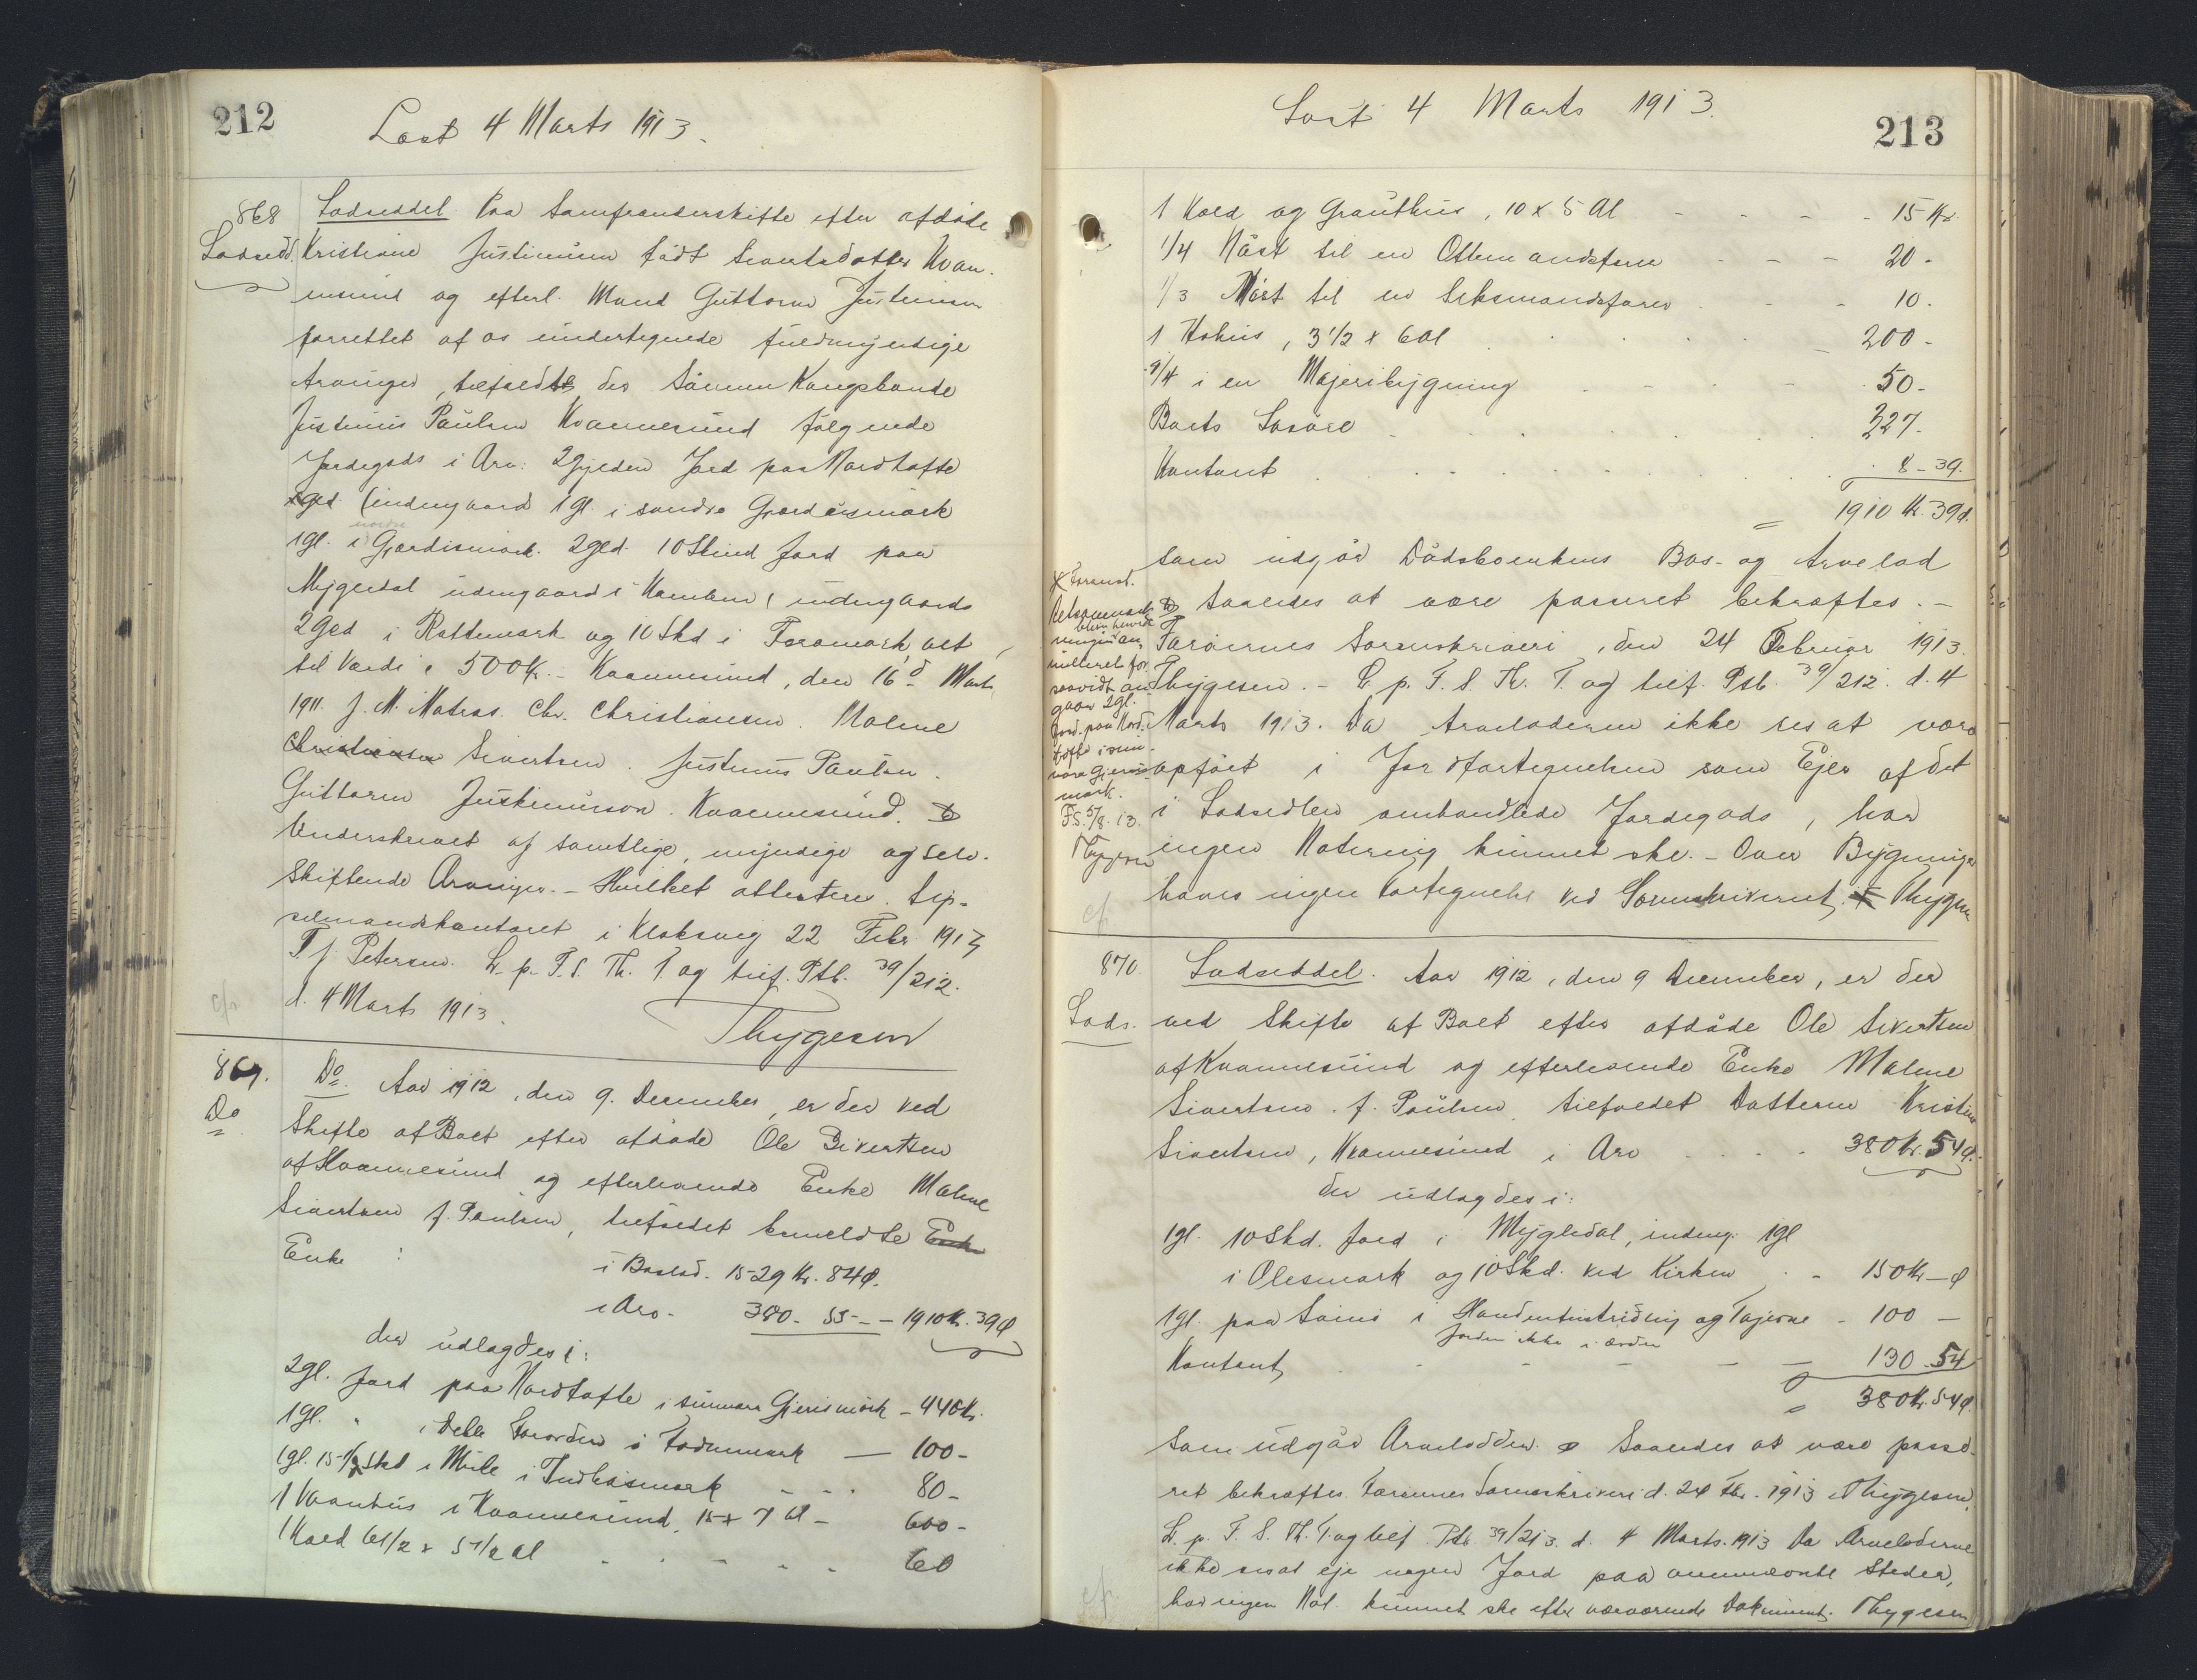 212
Læst 4 Marts 1913.
868
Lodsedd.
Lodseddel Paa Samfrændeskifte efter afdøde
Kristiane Justinussen født Sivertsdatter Kvan-
nesund og efterl. Mand Guttorm Justinussen
forrettet af os undertegnede fuldmyndige
Arvinger, tilfaldt der Sønnen Kongsbonde
Justinus Paulsen Kvannesund følgende
Jordegods i Arv: 2 Gylden Jord paa Nordtofte
(indengaard 1 gl. i søndre Gjærdismørk
nordre
1 gl. i Gjærdismørk. 2 gld. 10 Skind Jord paa
Mygledal udengaard i Kamben, indengaards
2 gld i Rottumørk og 10 Skd i Foramørk, alt
til Værdi 500 Kr. - Kvannesund, den 16d Marts
1911. J. M. Matras. Chr. Christiansen. Malene
Christiansen Sivertsen. Justinus Paulsen.
Guttorm Justinussen. Kvannesund.
Underskrevet af samtlige, myndige og selv-
skiftende Arvinger. - Hvilket attesteres. Sys-
selmandskontoret i Klaksvig 22 Febr 1913
F. J. Petersen. L. p. F. S. Th. T. og tilf. Ptb. 39/212.
d. 4 Marts 1913.
Thygesen
869.
Do
Do. Aar 1912, den 9. December, er der ved
Skifte af Boet efter afdøde Ole Sivertsen
af Kvannesund og efterlevende Enke Malene
Sivertsen f. Paulsen, tilfaldet bemeldte Enke
Enke :
i Boslod. 1529 Kr. 84 Ø.
i Arv - 380 - 55 - - 1910 Kr. 39 Ø
der udlagdes i:
2 gl. Jord paa Nordtofte i sunnara Gjerismørk - 440 Kr.
1 gl. " i Depil Norden i Fodnumørk - 100 -
1 gl. 15 1/2 Skd i Mule i Indhusmørk - - - 80 -
1 Vaanhus i Kvannesund, 15 x 7 Al - 600 -
1 Kæld 6 1/2 x 5 1/2 Al - - - - 60
213
Læst 4 Marts 1913.
1 Kæld og Grauthus, 10 x 5 Al - - - - 15 Kr.
1/4 Nåst til en Ottemandsfarer - - - 20 -
1/3 Nåst til en Seksmandsfarer - - 10 -
1 Kohus, 3 1/2 x 6 Al - 200 -
2/4 i en Mejeribygning - - - 50 -
Boets Løsøre 327 -
Kontant 8 - 39.
= 1910 Kr. 39 Ø.
som udgør Dødsboenkens Bos- og Arvelod
Saaledes at være passeret bekræftes. -
Færøernes Sorenskriveri, den 24 Februar 1913.
Thygesen. - L. p. F. S. Th. T. og tilf. Ptb. 39/212. d. 4
Marts 1913. Da Arveladeren ikke ses at være
opført i Jordfortegnelsen som Ejer af det
i Lodsedlen omhandlede Jordegods, har
ingen Notering kunnet ske. - Over Bygninger
haves ingen Fortegnelse ved Sorenskriveriet. Thygesen
X Foranst.
Retsanmærk-
ningen
blev herved
annulleret for
saavidt an-
gaar 2 gl.
Jord paa Nord-
tofte i sun-
nara Gjeris-
mørk.
F.S. 5/8. 13.
Thygesen
cf.
870.
Lods.
Lodseddel. Aar 1912, den 9 December, er der
ved Skifte af Boet efter afdøde Ole Sivertsen
af Kvannesund og efterlevende Enke Malene
Sivertsen f. Paulsen tilfaldet Datteren Kristine
Sivertsen, Kvannesund i Arv - - - - 380 Kr. 54 Ø.
der udlagdes i:
1 gl. 10 Skd. Jord i Mygledal, indeng. 1 gl
i Olesmørk og 10 Skd. ved Kirken - - 150 Kr - Ø
1 gl. paa Svinø i og - 100 -
Jorden ikke i Orden
Kontant - - - - 130 . 54
= 380 Kr. 54 Ø.
som udgør Arvelodden. Saaledes at være passe-
ret bekræftes. Færøernes Sorenskriveri d. 24 Fbr. 1913 Thygesen.
L. p. F. S. Th. T. og tilf. Ptb. 39/213. d. 4 Marts. 1913 Da Arveladerne
ikke ses at eje nogen Jord paa ommeldte Steder,
har ingen Not. kunnet ske efter nærværende Dokument. Thygesen